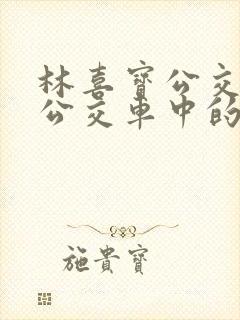 林喜寳公交
公交車中的
施貴寳